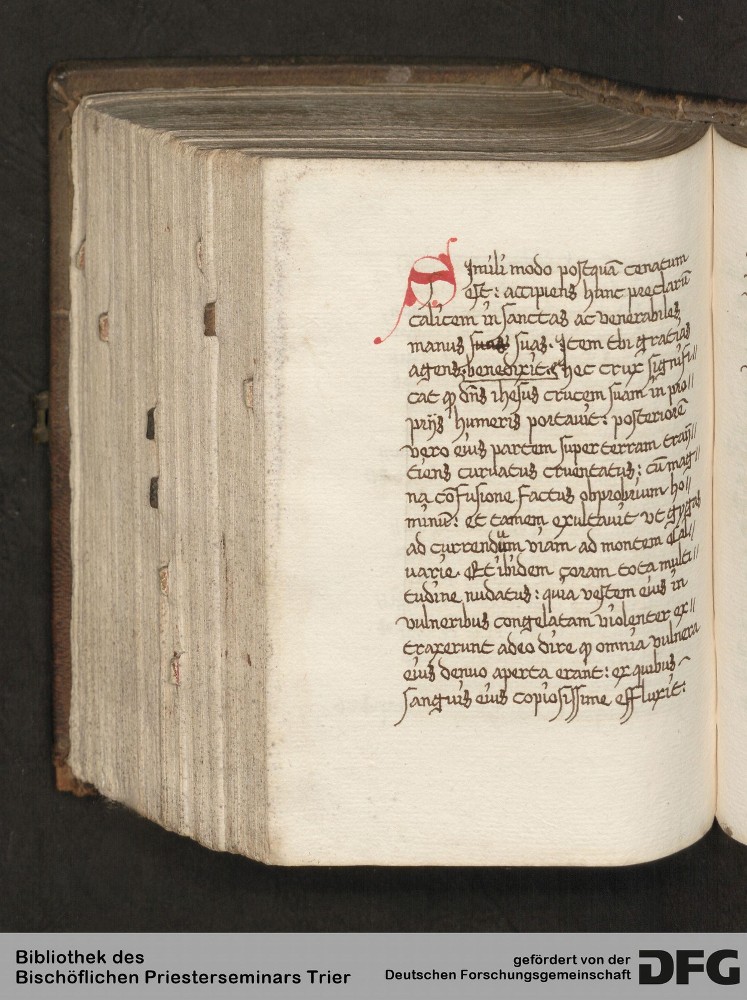 Simili modo postquā cenatum
est: accipiens hunc preclarū
calicem in sanctas ac venerabiles
manus suas suas. Item tibi gratias
agens, benedixit: Hec crux signifi//
cat qp dn̄s ihesus crucem suam in pro//
prijs humeris portauit: posteriorē
vero eius partem super terram traij//
ciens curuatus cruentatus: cū mag//
na cōfusione factus obprobrium ho//
minū: et tamen exultauit vt gygas
ad currendum viam ad montem Cal//
uarie. Et ibidem coram tota multi//
tudine nudatus: quia vestem eius in
vulneribus congelatam violenter ex//
traxerunt adeo dire qp omnia vulnera
eius denuo aperta erant: ex quibus
sanguis eius copiosissime effluxit:
Bibliothek des
Bischöflichen Priesterseminars Trier
gefördert von der
Deutschen Forschungsgemeinschaft
DFG